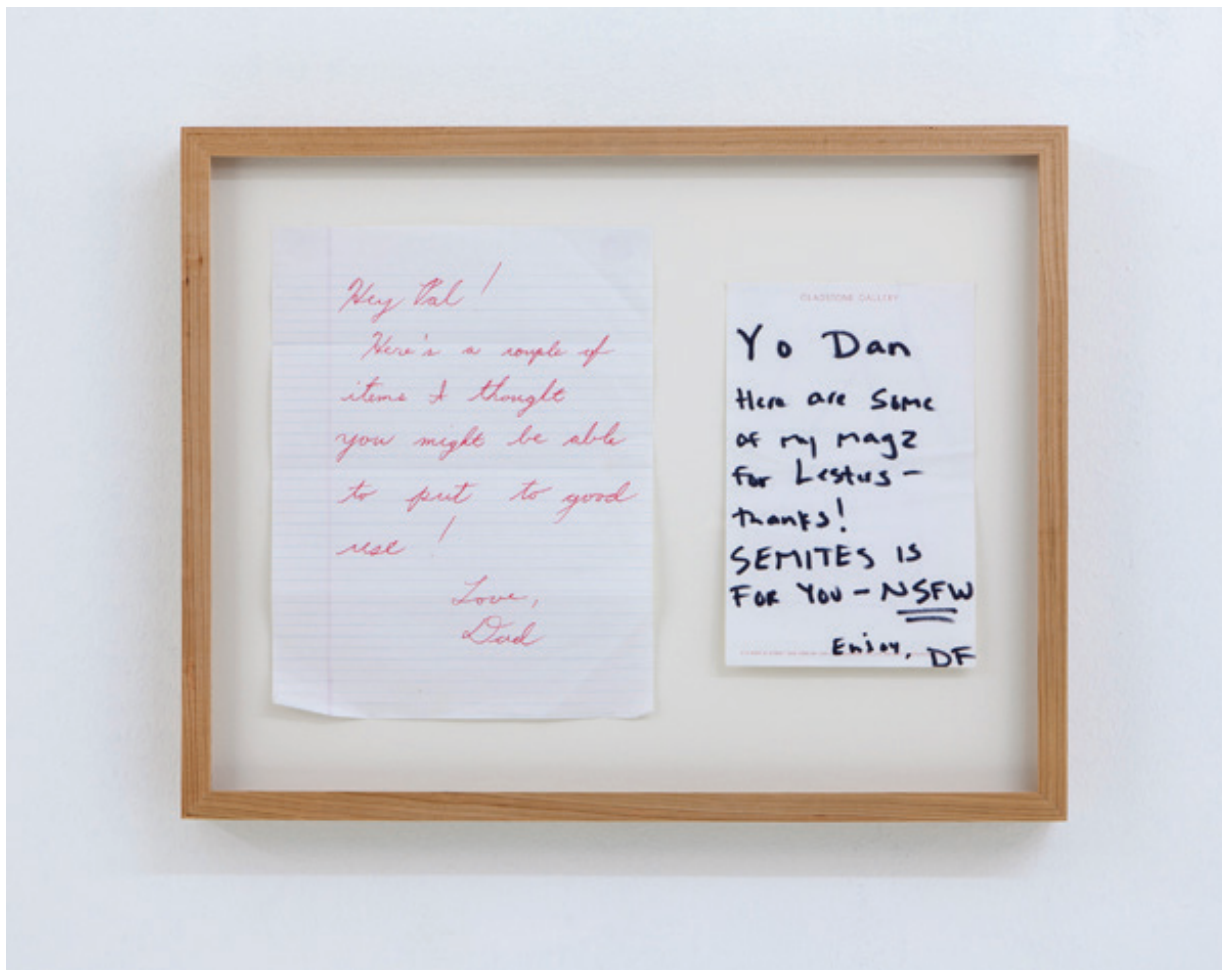 Hey Pal!
Here's a couple of
items I thought
you might be able
to put to good
use!
Love,
Dad
GLADSTONE GALLERY
Yo Dan
Here are some
of my magz
for Lestus -
thanks!
SEMITES IS
FOR YOU - NSFW
Enjoy, DF